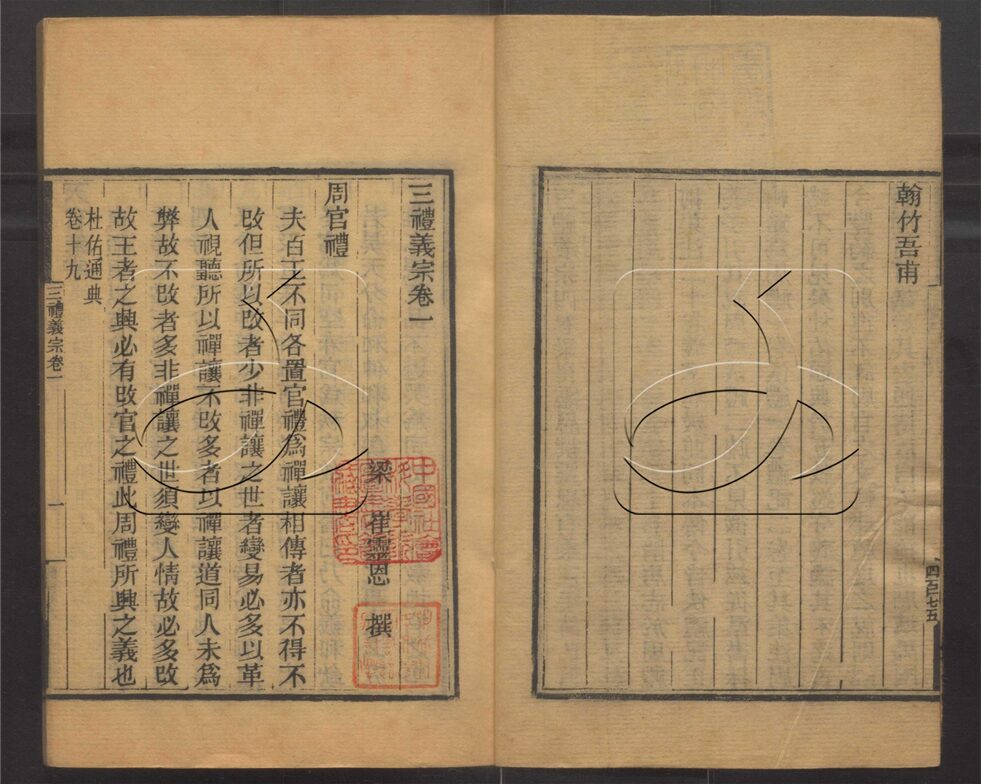 翰竹吾甫
四百七五
三禮義宗卷一
梁 崔靈恩 撰
周官禮
夫百王不同各置官禮爲禪讓相傳者亦不得不
改但所以改者少非禪讓之世者變易必多以革
人視聽所以禪讓不改多者以禪讓道同人未爲
弊故不改者多非禪讓之世須變人情故必多改
故王者之興必有改官之禮此周禮所興之義也
杜佑通典
卷十九
三禮義宗卷一
一